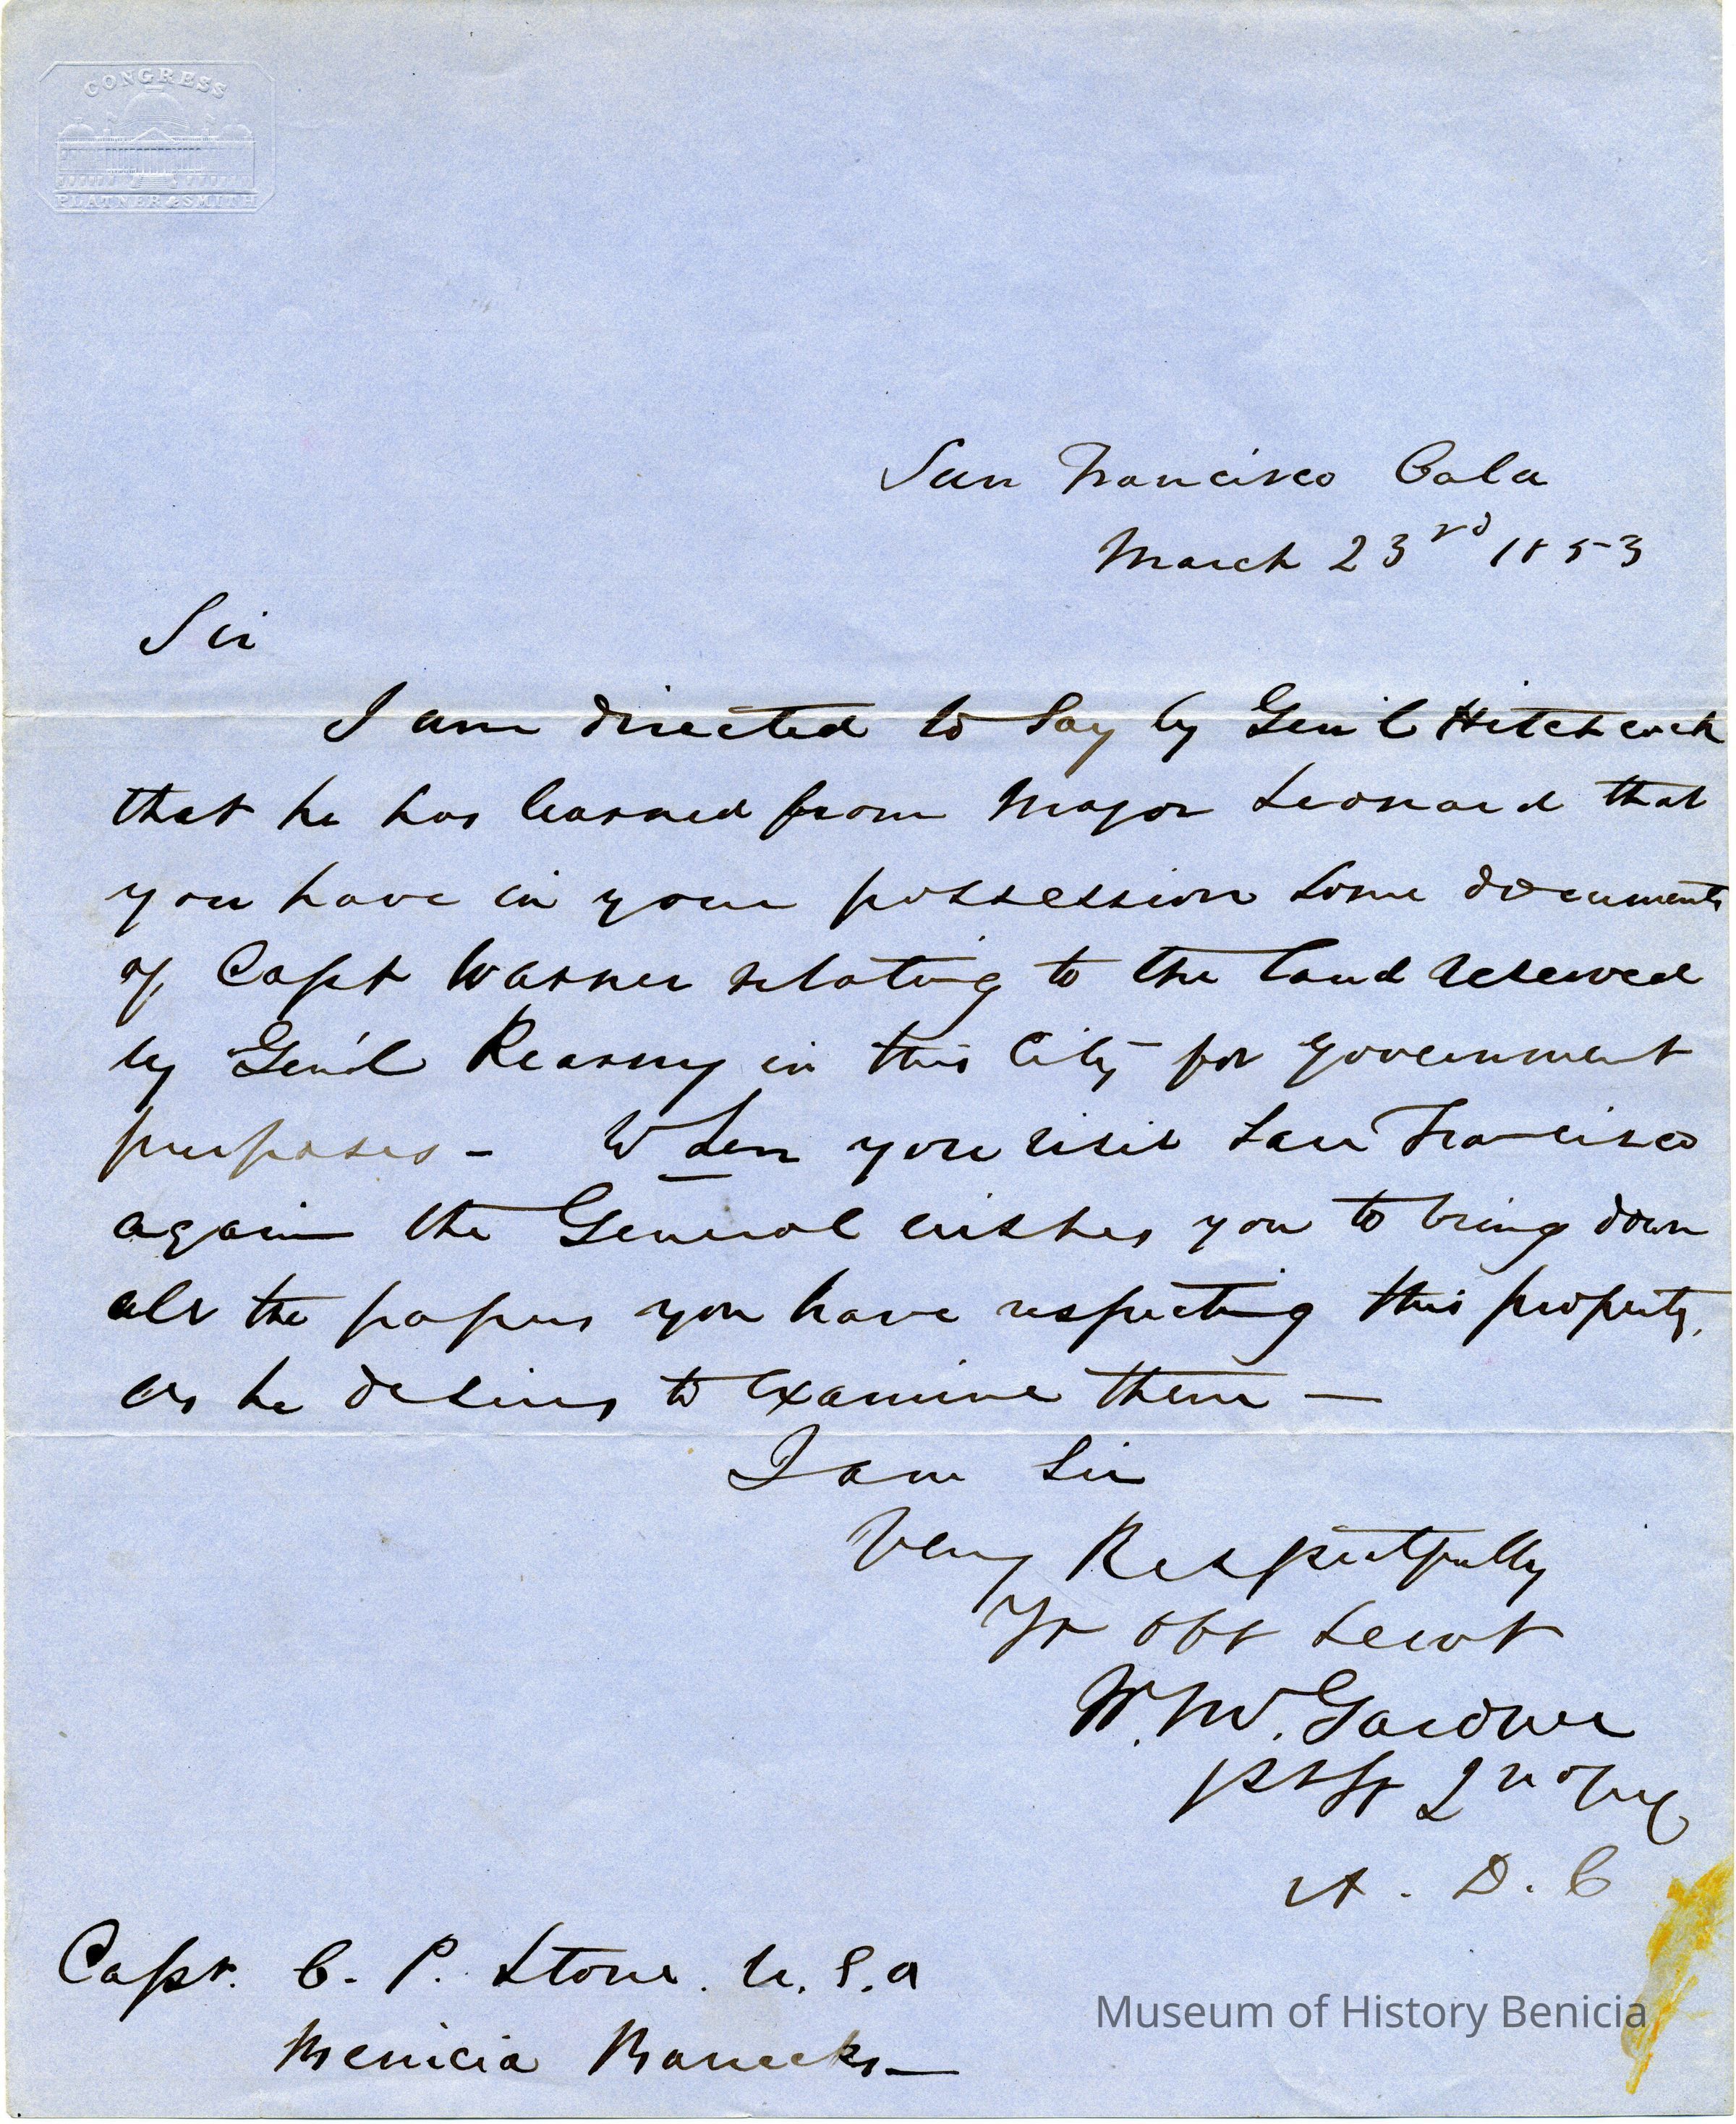 CONGRESS
PLATNER & SMITH
San Francisco Cala
March 23rd 1853
Sir
I am directed to say by Gen'l Hitchcock
that he has learned from Major Leonard that
you have in your possession some documents
of Capt Warner relating to the land reserved
by Gen'l Kearny in this City for government
purposes - When you visit San Francisco
again the General wishes you to bring down
all the papers you have respecting this property,
as he desires to examine them —
I am Sir
Very Respectfully
Yr Obt Servt
W. M. Gardner
A. D. C
Capt. C. P. Stone. U. S. A
Benicia Barracks —
Museum of History Benicia